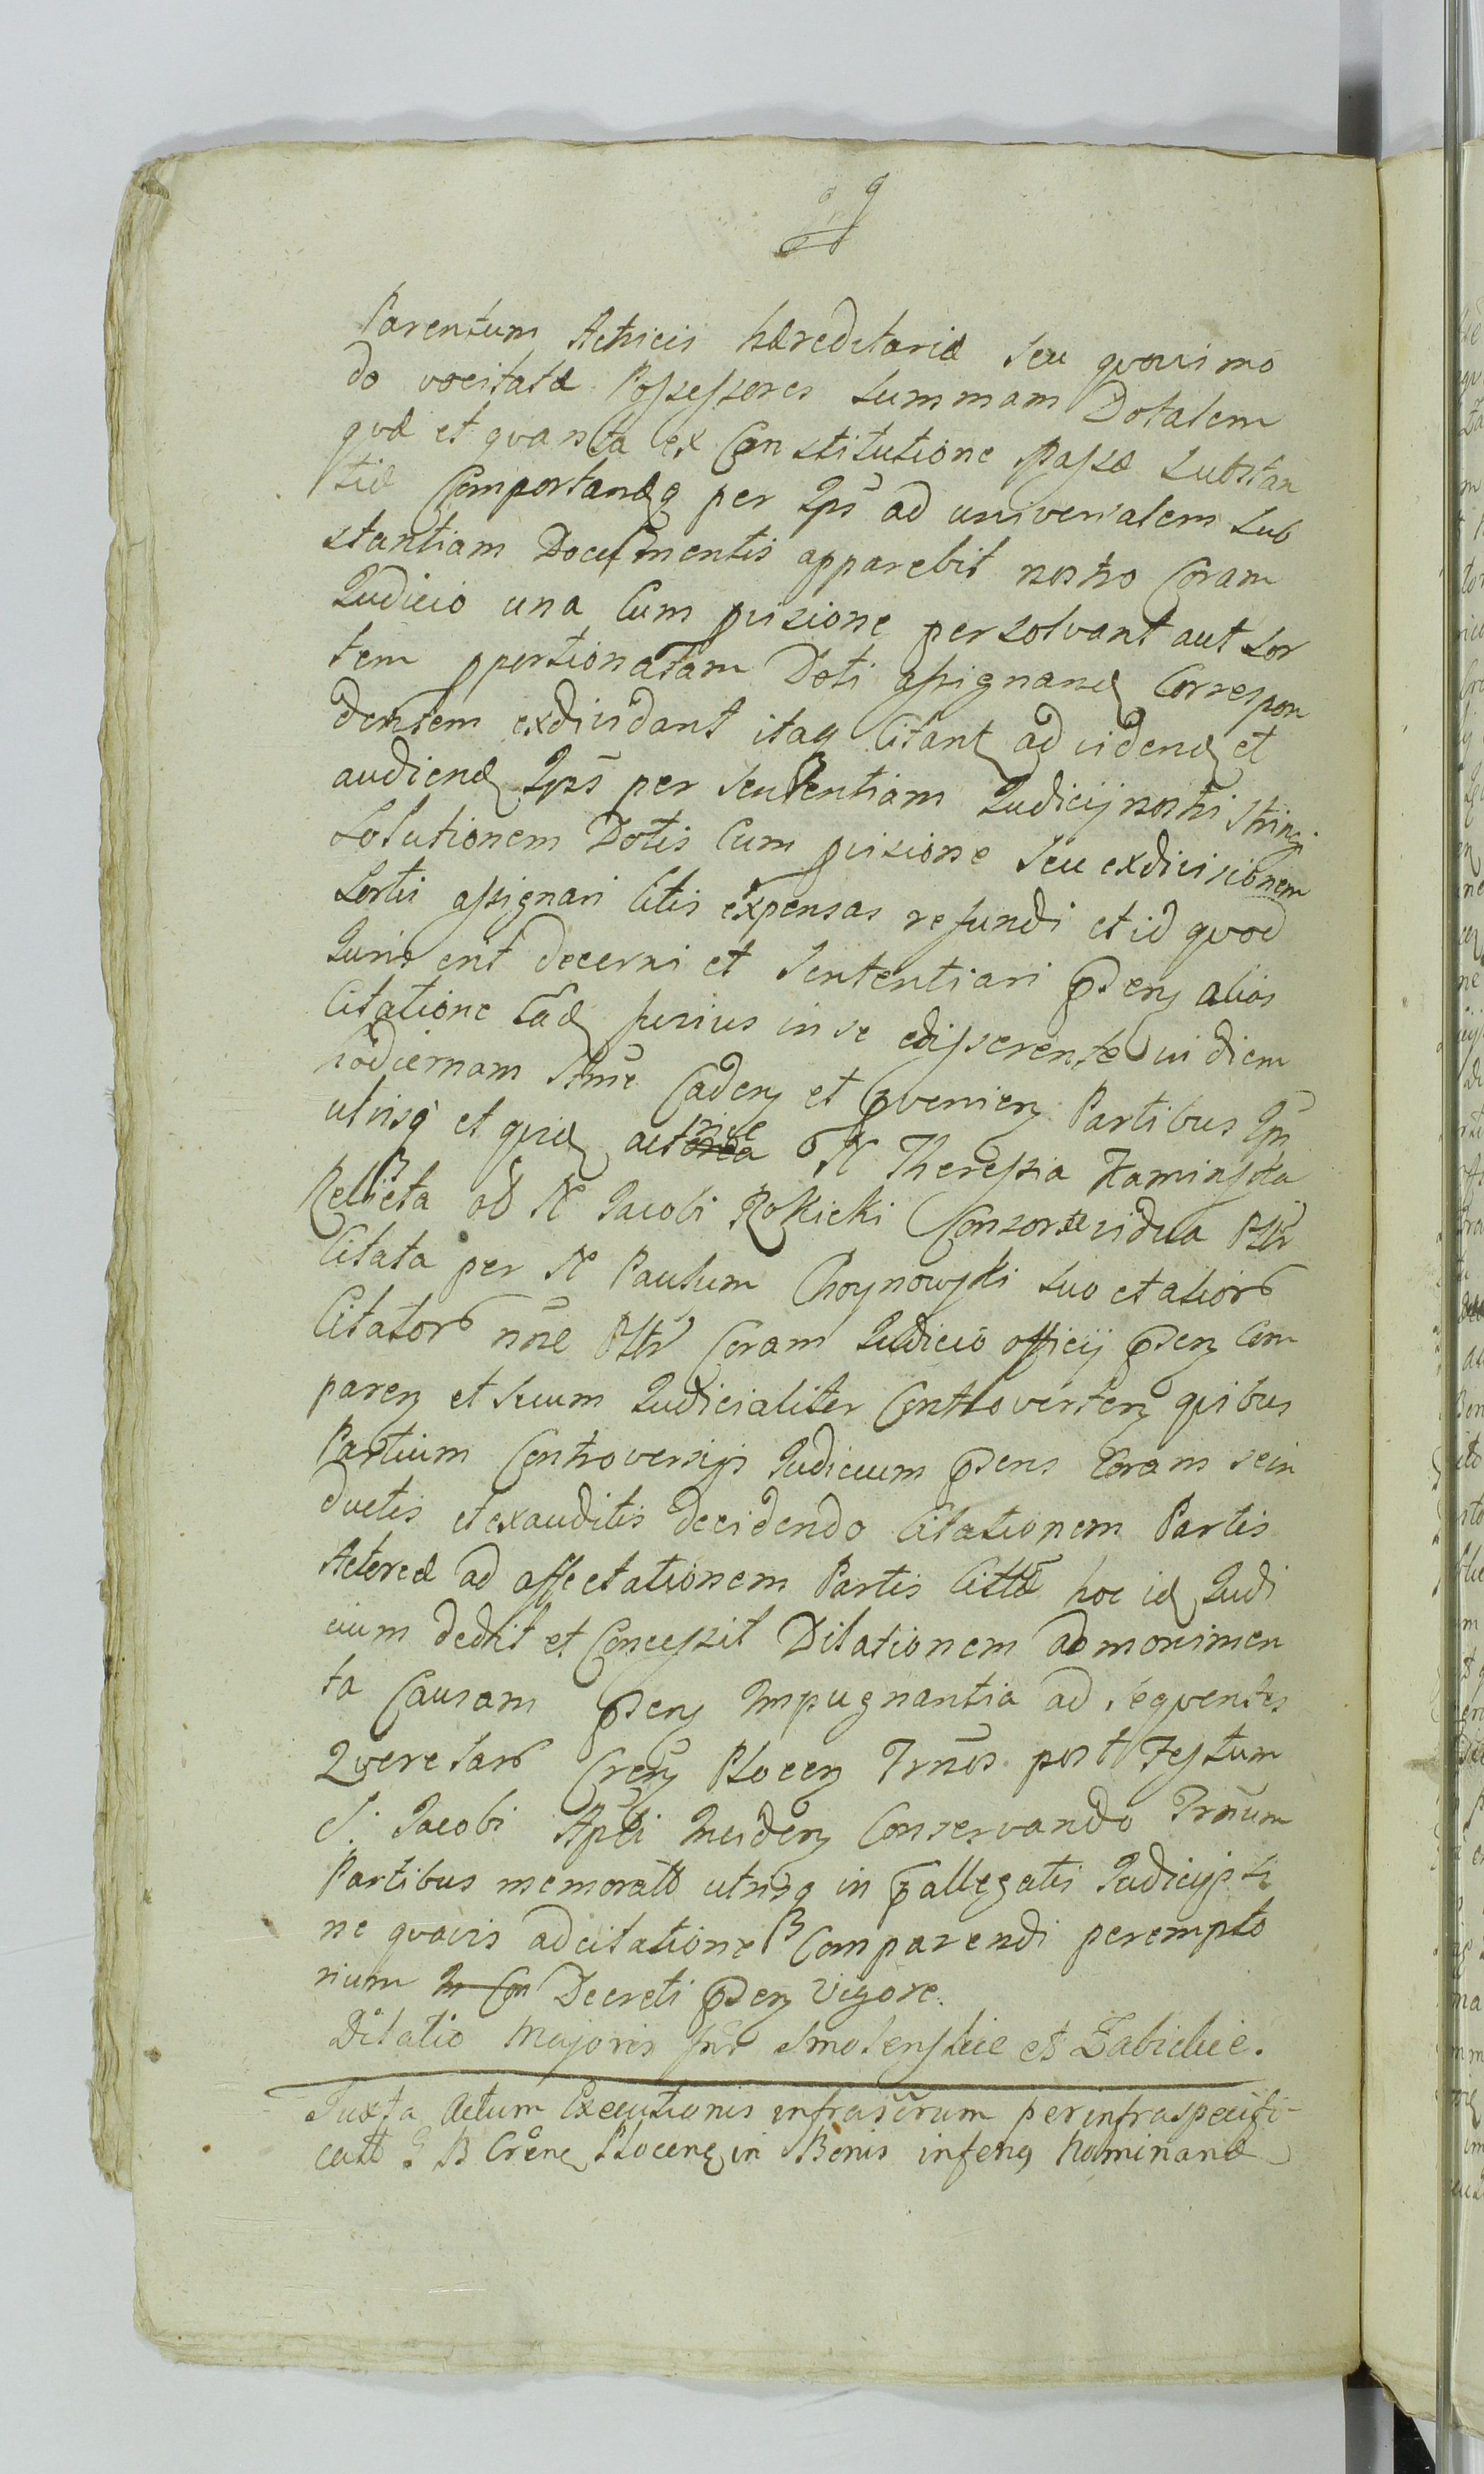 9
Parentum Actricis hæreditariæ seu qvovismo
do vocitatæ Possessores summam Dotalem
qvæ et qvanta ex Constitutione passæ substan
tiæ Comportandq per Ips̄ ad universalem sub
stantiam Documentis apparebit nostro Coram
Judicio una Cum pvisione persolvant aut sor
tem pportionatam Doti assignand Correspon
dentem exdividant itaq Citant ad vidend et
audiend Ips̄ per sententiam Judicij nostri stringi
Solutionem Dotis Cum pvisione seu exdivisionem
Sortis assignari litis expensas refundi et id qvod
Juris erit decerni et sententiari pden alias
Citatione ead fusius in se edisserente in diem
hodiernam Caden et pvenien Partibus Ips̄
utrisq et qvid N Theressia Kaminska
Relicta od N Jacobi Rokicki Consorte vidua Pstr
Citata per N Paulum Choynowski suo et alior
Citator nn̄e Pstr Coram Judicio officij pden Com
paren et suum Judicialiter Controverten qvibus
Partium Controversijs Judicium pdens Coram se in
ductis et exauditis decidendo Citationem Partis
Actoreæ ad affectationem Partis Cittæ hoc id Judi
cium dedit et Concessit Dilationem ad monimen
ta Causam pden Impugnantia ad seqventes
Qverelar Cren Plocen Trnos post Festum
S. Jacobi Apli Inciden Conservando Trnum
Partibus memoratt utrisq in pallegatis Judicijs si
ne qvavis adcitatione Comparendi perempto
rium Decreti pden vigore.
Dilatio Majoris Inr Smolenskie et Zabickie.
Juxta Actum Executionis infrascrum per infraspecifi-
catt G B Crenc Plocenc in Bonis inferq Nominand